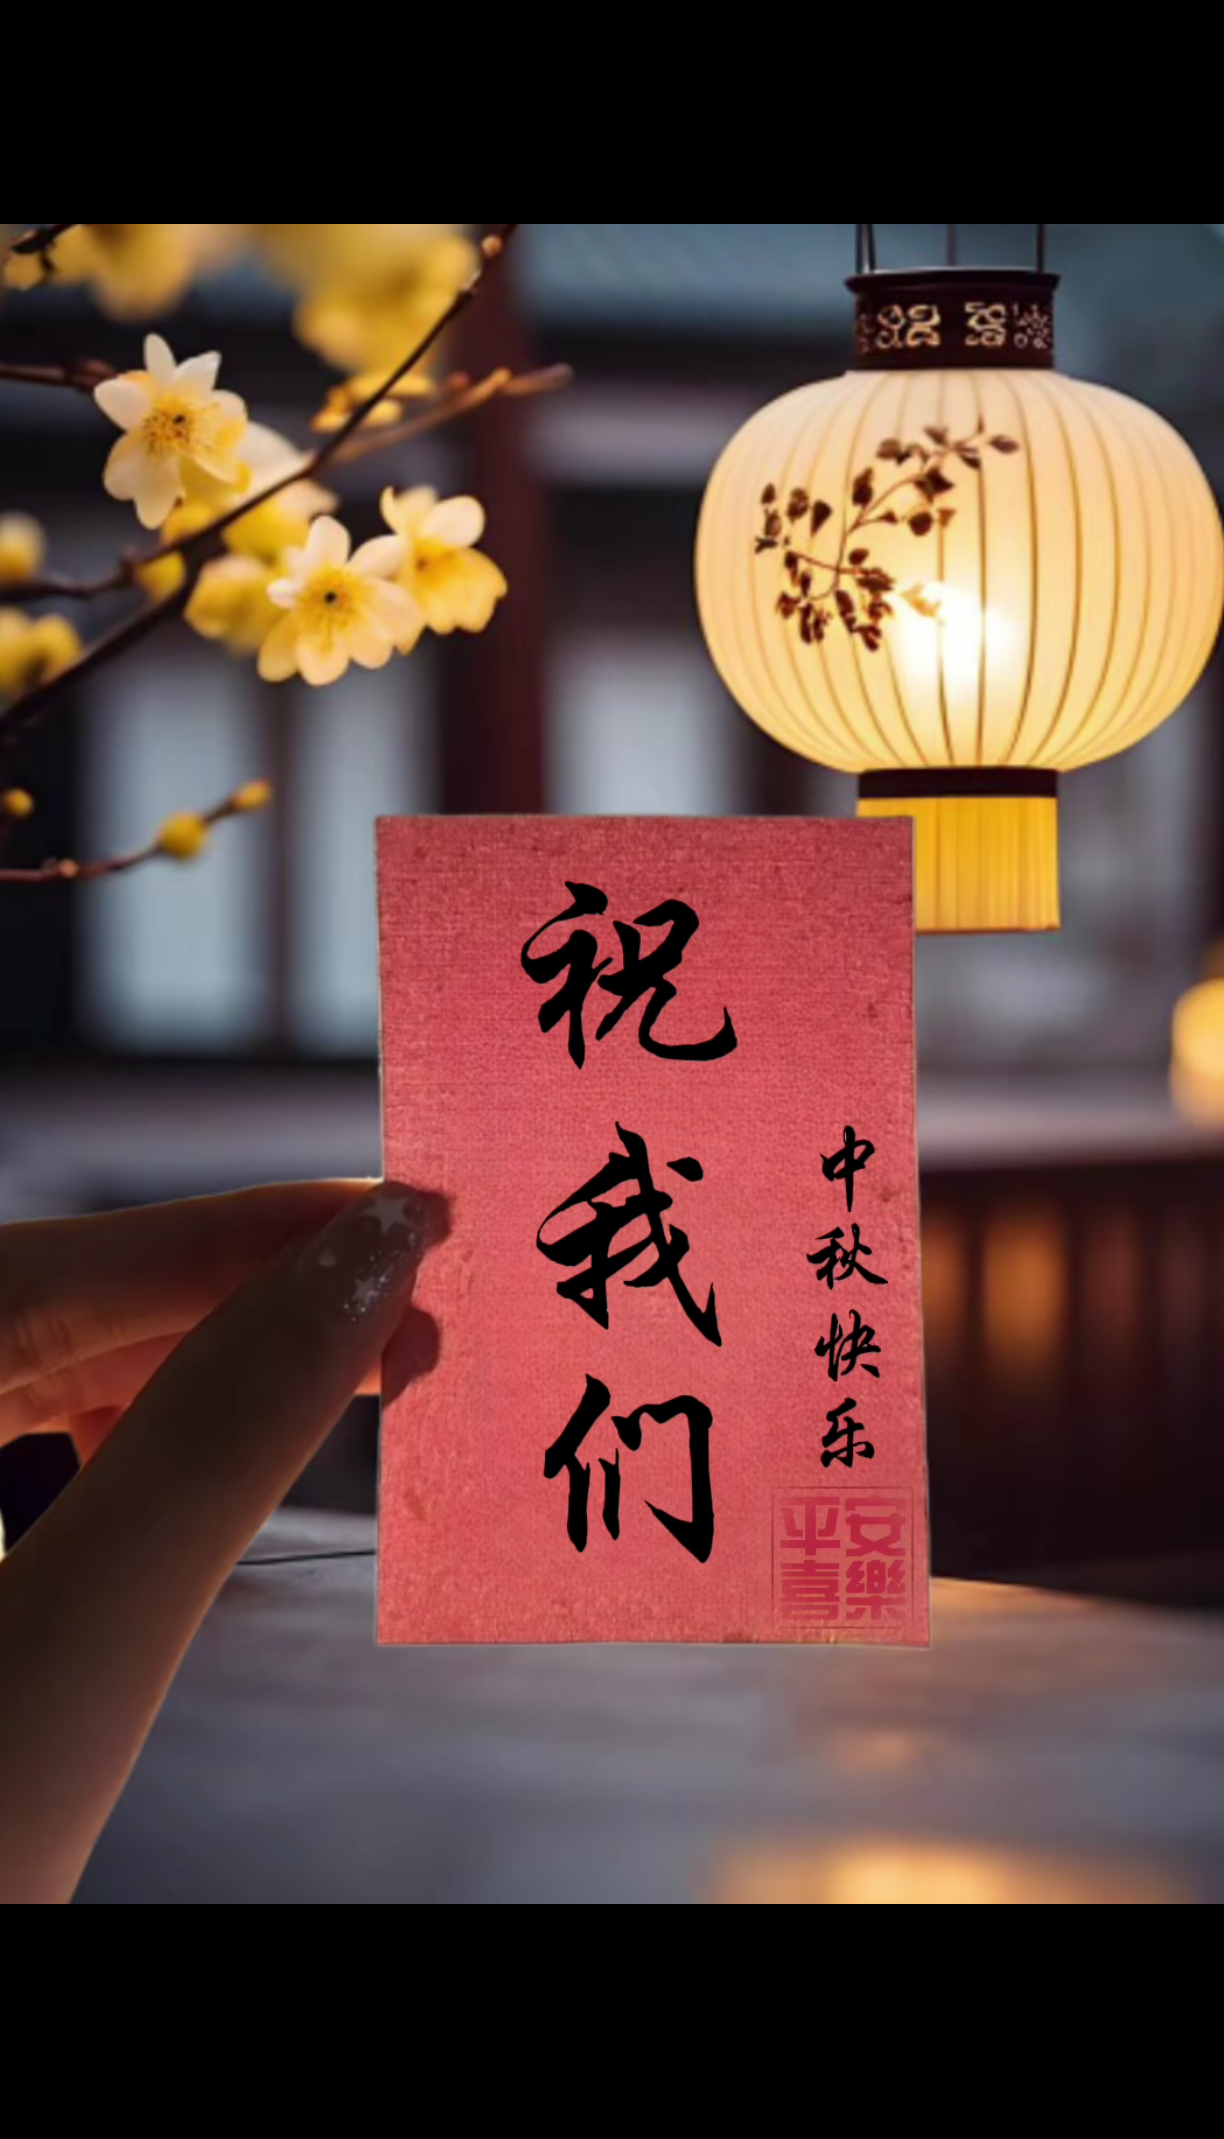 祝我们
中秋快乐
平安喜樂